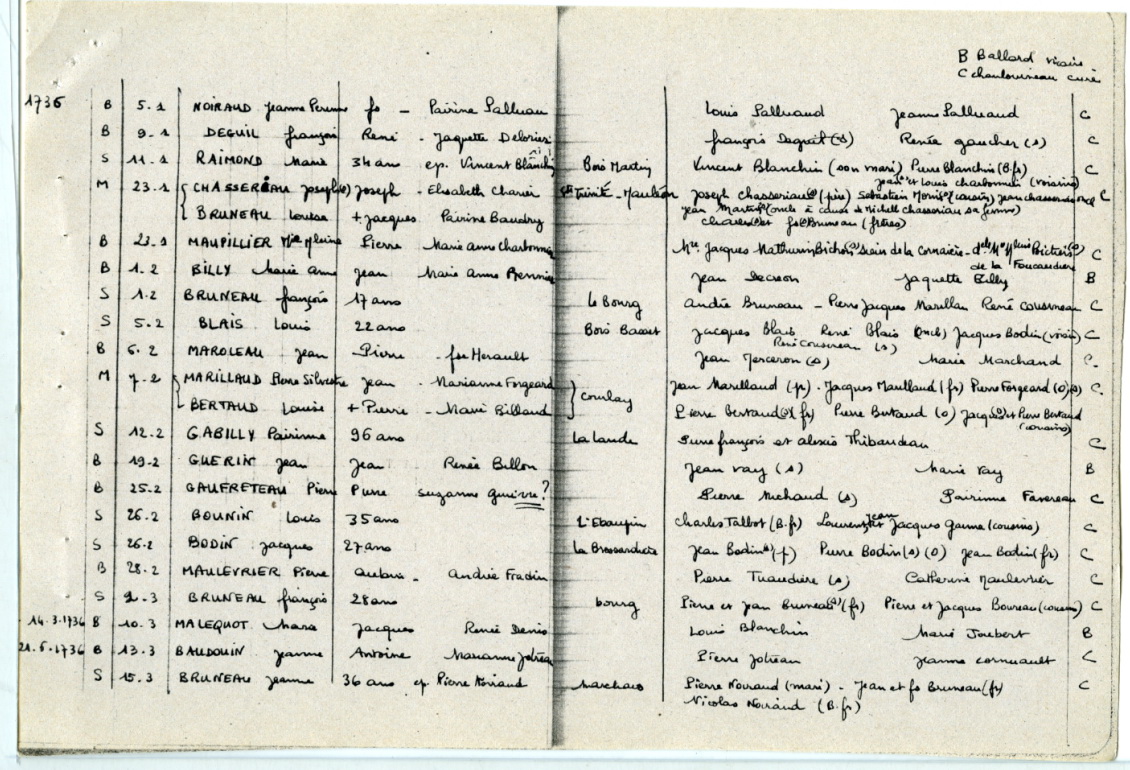 B Ballard vicaire
C chantouineau curé
1736 B 5.1 NOIRAUD Jeanne Perinne fs - Pairine Palluau Louis Palluaud Jeanne Palluaud C
B 9.1 DEGUIL françois René - Jaquette françois (s) Renée gaucher (s) C
S 11.1 RAIMOND Marie 34 ans ep. Vincent Blanchin Bois Martin Vincent Blanchin (son mari) Pierre Blanchin (B.fr) C
Jean et Louis charbonneau (voisins)
M 23.1 CHASSEREAU Joseph (s) Joseph - Elisabeth Charier Trinité - Mauléon Joseph chasseriau (s) (père) Sebastien (cousin) Jean chassereau C
BRUNEAU Louise + Jacques Pairine Baudry Jean Martin (oncle à cause de Michelle Chasseriau sa femme)
charles et fs Bruneau (frères)
B 23.1 MAUPILLIER Pierre Marie anne Charbonneau Mre. Jacques Mathurin Bichon (s) sieur de la C
de la Foucaudière
B 1.2 BILLY Marie Anne Jean Marie Anne Jean Jaquette Billy B
S 1.2 BRUNEAU françois 17 ans le Bourg André Bruneau - Pierre Jacques Marillau René Cousseau C
S 5.2 BLAIS Louis 22 ans Bois Jacques Blais René Blais (oncle) Jacques Bodin (voisin) C
René Cousseau (s)
B 6.2 MAROLEAU Jean Pierre - fse Herault Jean Merceron (s) Marie Marchand C.
M 7.2 MARILLAUD Pierre Silvestre Jean - Marianne Forgeard coulay Jean Marillaud (fr) - Jacques Marillaud (fr) Pierre Forgeard (o) (s) C.
BERTAUD Louise + Pierre - Marie Billaud Pierre Bertaud (s) (fr) Pierre Bertaud (o) Jacques (s) et Pierre Bertaud
(cousins)
S 12.2 GABILLY Pairinne 96 ans La Lande Pierre françois et alexis Thibaudeau C
B 19.2 GUERIN Jean Jean Renée Billon Jean vay (s) Marie vay B
B 25.2 GAUFRETEAU Pierre Pierre suzanne guiivre? Pierre Michaud (s) Pairinne Favereau C
S 26.2 BOUNIN Louis 35 ans L'Ebaupin charles Talbot (B.fr) Laurent, Jean et Jacques (cousins) C
S 26.2 BODIN Jacques 27 ans la Brossardiere Jean Bodin (s) (p) Pierre Bodin (s) (o) Jean Bodin (fr) C
B 28.2 MAULEVRIER Pierre aubin - Andrée Fradin Pierre Tuaudière (s) Catherine Maulevrier C
S 2.3 BRUNEAU françois 28 ans bourg Pierre et Jean Bruneau (s) (fr) Pierre et Jacques Boureau (cousins) C
14.3.1736 B 10.3 MALEQUOT Jacques Renée Denis Louis Blanchin Marie Joubert B
21.5.1736 B 13.3 BAUDOUIN Jeanne Antoine Marianne Jotreau Pierre Jotreau Jeanne cornuault C
S 15.3 BRUNEAU Jeanne 36 ans ep Pierre Noiraud Marchais Pierre Noiraud (mari) - Jean et fs Bruneau (fr) C
Nicolas Noiraud (B.fr)